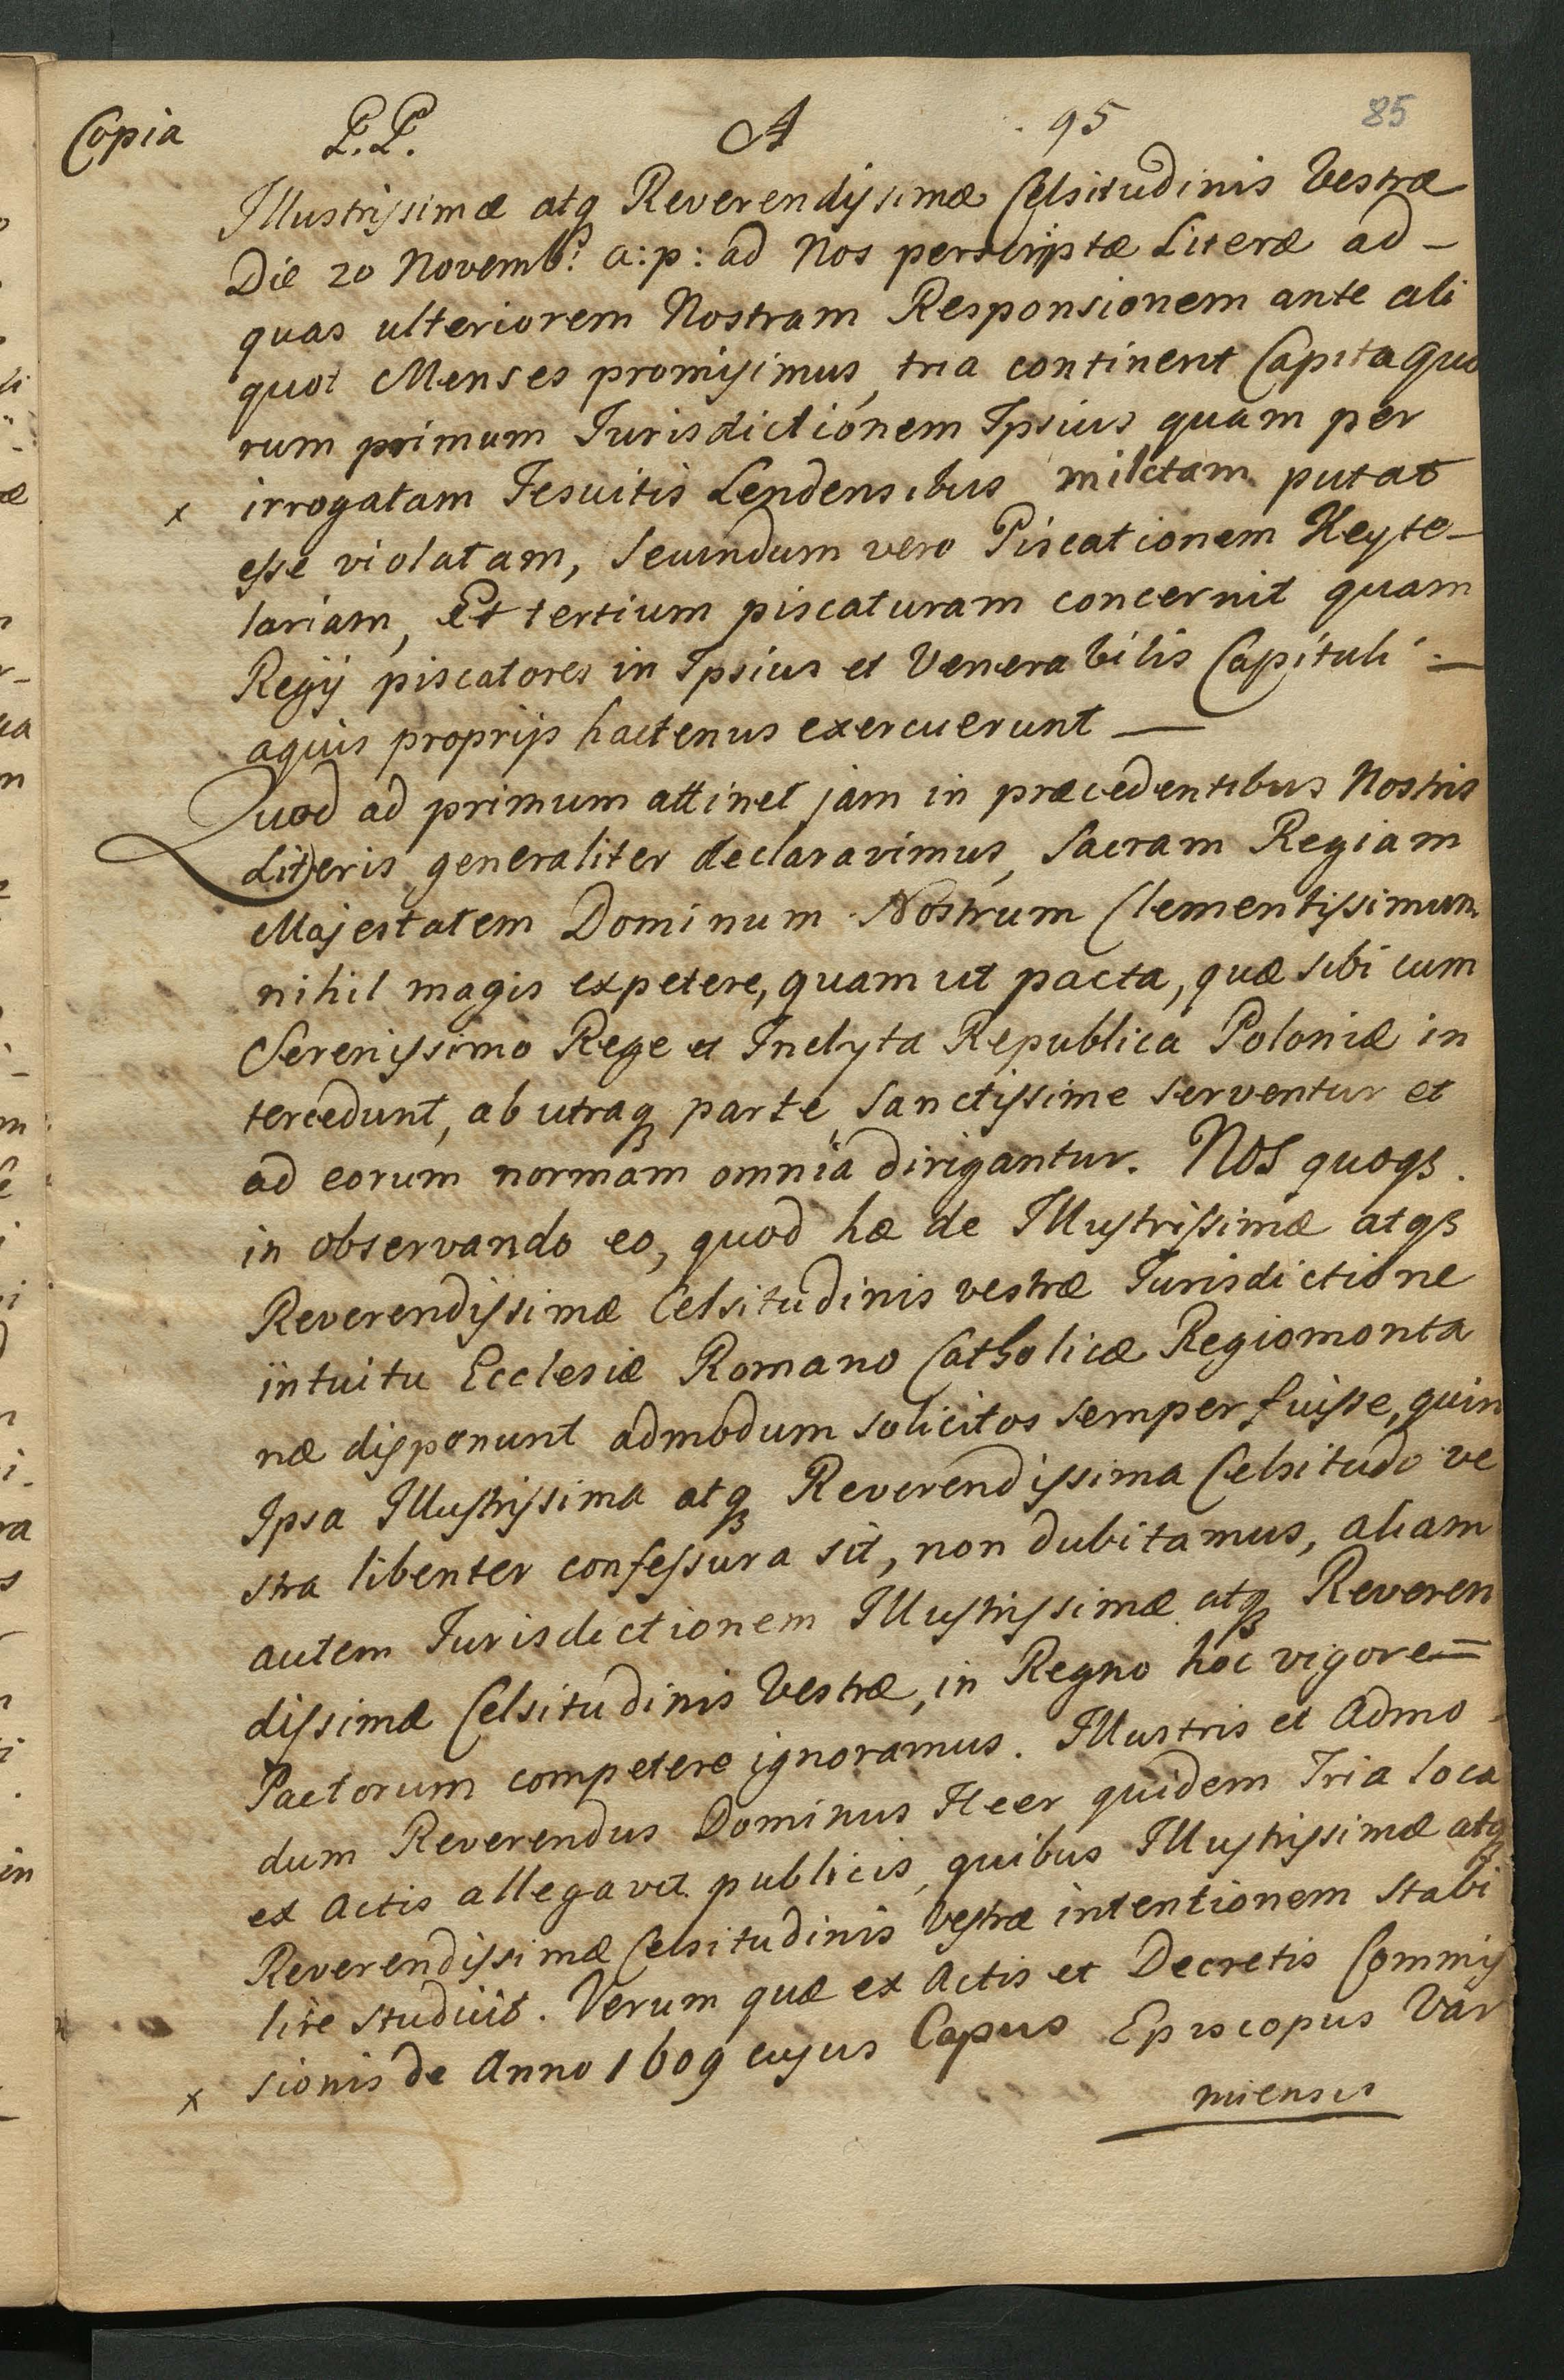 Copia P.P. A 95 85
Illustrissimæ atq Reverendissimæ Celsitudinis Vestræ
Die 20 Novemb: a:p: ad Nos perscriptæ Literæ ad-
quas ulteriorem Nostram Responsionem ante ali
quot Menses promisimus, tria continent Capita quo
rum primum Jurisdictionem Ipsius quam per
x irrogatam Jesuitis Lendensibus milctam putat
esse violatam, Secundum vero Piscationem Keyte-
lariam, Et tertium piscaturam concernit quam
Regij piscatores in Ipsius et Venerabilis Capituli -
aquis proprijs hactenus exercuerunt —
Quod ad primum attinet jam in præcedentibus Nostris
Literis generaliter declaravimus, Sacram Regiam
Majestatem Dominum Nostrum Clementissimum
nihil magis expetere, quam ut pacta, quæ sibi cum
Serenissimo Rege et Inclyta Republica Poloniæ in
tercedunt, ab utraq parte Sanctissime serventur et
ad eorum normam omnia dirigantur. NOS quoqs.
in observando eo, quod hæ de Illustrissimæ atqs
Reverendissimæ Celsitudinis vestræ Jurisdictione
intuitu Ecclesiæ Romano Catholicæ Regiomonta
næ disponunt admodum solicitos semper fuisse, quin
Ipsa Illustrissima atq Reverendissima Celsitudo ve
stra libenter confessura sit, non dubitamus, aliam
autem Jurisdictionem Illustrissimæ atq Reveren
dissimæ Celsitudinis Vestræ, in Regno hoc vigore=
Pactorum competere ignoramus. Illustris et Admo
dum Reverendus Dominus Heer quidem Tria loca
ex Actis allegavit publicis, quibus Illustrissimæ atq
Reverendissimæ Celsitudinis Vestræ intentionem stabi
lire studuit. Verum quæ ex Actis et Decretis Commis
x sionis de Anno 1609 cujus Capus Episcopus Var
miensis